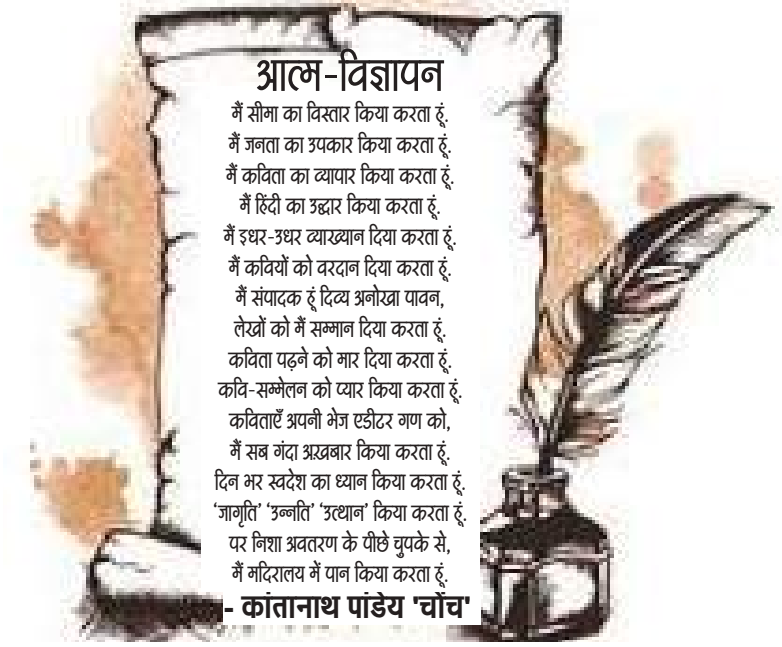 आत्म-विज्ञापन
मैं सीमा का विस्तार किया करता हूं.
मैं जनता का उपकार किया करता हूं.
मैं कविता का व्यापार किया करता हूं.
मैं हिंदी का उद्धार किया करता हूं.
मैं इधर-उधर व्याख्यान दिया करता हूं.
मैं कवियों को वरदान दिया करता हूं.
मैं संपादक हूं दिव्य अनोखा पावन,
लेखों को मैं सम्मान दिया करता हूं.
कविता पढ़ने को मार दिया करता हूं.
कवि-सम्मेलन को प्यार किया करता हूं.
कविताएँ अपनी भेज एडीटर गण को,
मैं सब गंदा अख़बार किया करता हूं.
दिन भर स्वदेश का ध्यान किया करता हूं.
‘जागृति’ ‘उन्नति’ ‘उत्थान’ किया करता हूं.
पर निशा अवतरण के पीछे चुपके से,
मैं मदिरालय में पान किया करता हूं.
- कांतानाथ पांडेय 'चोंच'